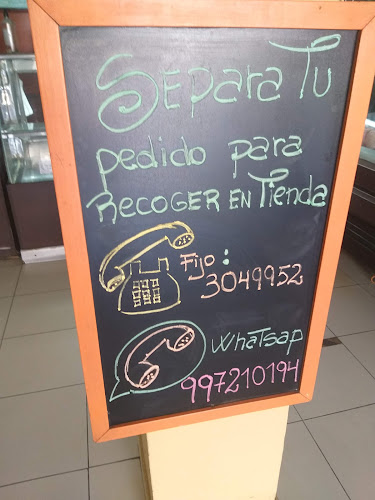 Separa Tu
pedido para
Recoger en Tienda
Fijo:
3049952
Whatsap
997210194